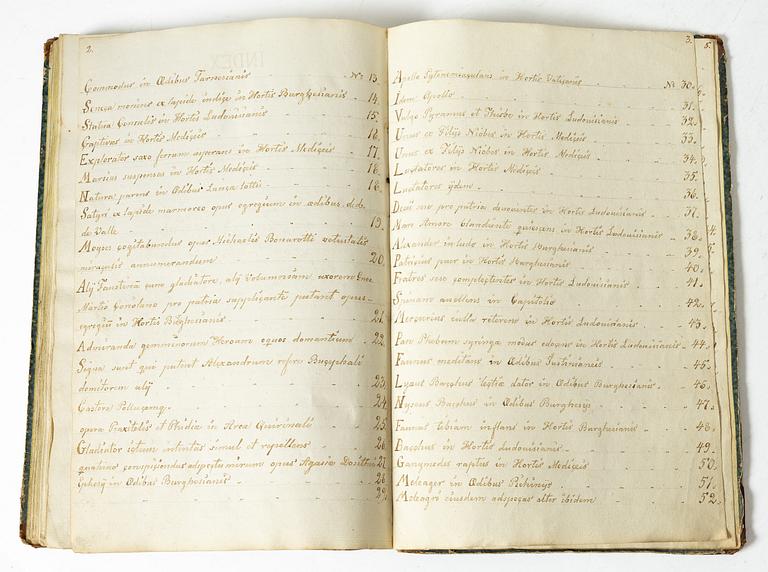 2.
INDEX
Commodus in Ædibus Farnesianis No 13.
Seneca moriens ex lapide indigo in Hortis Burghesianis 14.
Statua Consulis in Hortis Ludouisianis 15.
Captivus in Hortis Medigeis 16.
Explorator saxo ferrum asperans in Hortis Medigeis 17.
Marsias suspensus in Hortis Medigeis 18.
Natura parens in Ædibus Lança
Satyri ex lapide marmoreo opus egregium in ædibus de de
de Valle 19.
Moyses cogitabundus opus Michaelis Bonarotti vetustatis
miraculis annumerandum 20.
Alÿ Faustina cum gladiatore, alÿ Volumniam uxorem Cneo
Martio Coriolano pro patria supplicante putant opus
egregiũ in Hortis Bũghesianis 21.
Admiranda geminorum Heroum equos domantium 22.
Signa sunt qui putent Alexandrum
domitorem alÿ 23.
Castora Pollucemq. 24.
opera Praxitelis et Phidiæ in Area Quirinali 25.
Gladiator ictum intentãs simul et repellens 26.
Agasiæ Dosithei 27.
Ephesÿ in Ædibus Burghesianis 28.
29.
3.
Apollo in Hortis Vaticanis No 30.
Idem Apollo 31.
Vulgo Pyramus et Thisbe in Hortis Ludouisianis 32.
Unus ex Filÿs Niobes in Hortis Medigeis 33.
Unus ex Filÿs Niobes in Hortis Medigeis 34.
Luctatores in Hortis Medigeis 35.
Luctatores ÿdem 36.
Decÿ seu pro patria devoventes in Hortis Ludouisianis 37.
Mars Amore blandiente quiescens in Hortis Ludouisianis 38.
Alexander in ludo in Hortis Burghesianis 39.
Patrigius puer in Hortis Burghesianis 40.
Fratres sese complectentes in Hortis Ludouisianis 41.
Spinam auellens in Capitolio 42.
Mercurius in Hortis Ludouisianis 43.
Pan Phebum syringa modus edocens in Hortis Ludouisianis 44.
Faunus meditans in Ædibus Justinianeis 45.
Lyæus Bacchus letitiæ dator in Ædibus Burghesianis 46.
Nyseus Bacchus in Ædibus Burghesÿs 47.
Faunus tibiam inflans in Hortis Burghesianis 48.
Bacchus in Hortis Ludouisianis 49.
Ganymedes raptus in Hortis Medigeis 50.
Meleager in Ædibus Pichinÿs 51.
Meleagri eiusdem adspectus alter ibidem 52.
5.